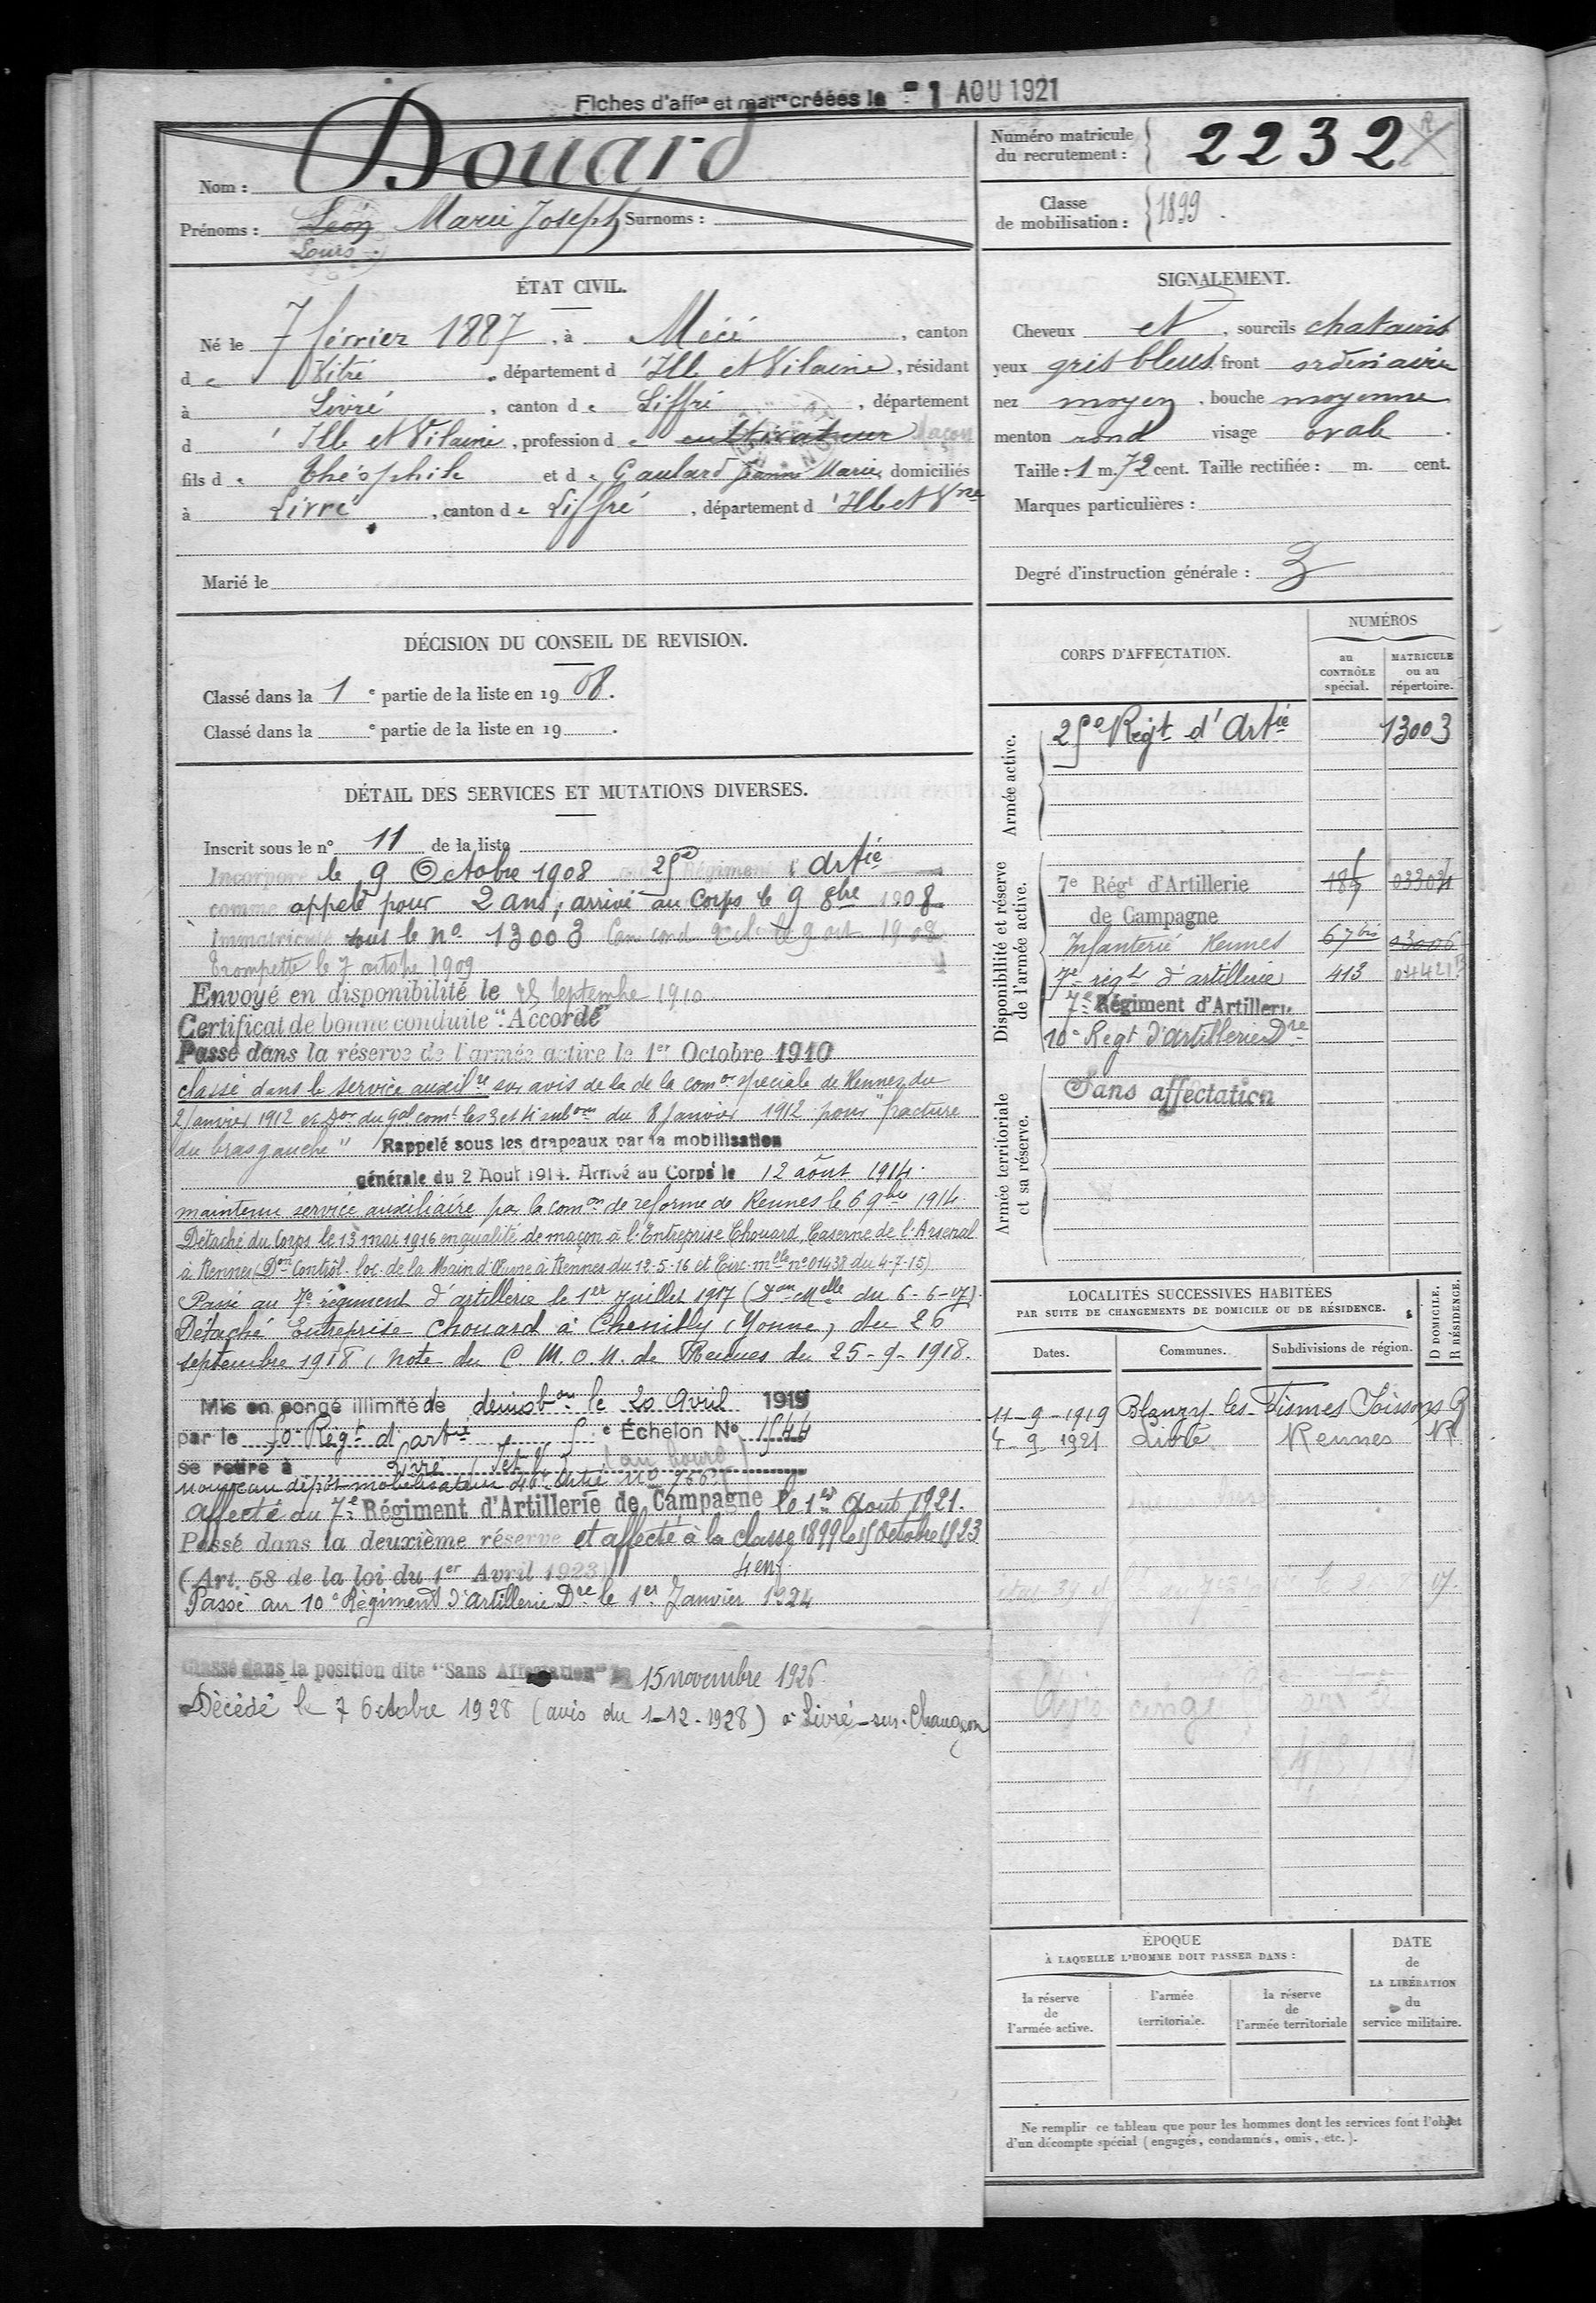 Fiches d'affon et matre créées le - 1 AOU 1921
Nom : Douard
Prénoms : Léon Marie Joseph Surnoms :
Louis
Numéro matricule
du recrutement : 2232
Classe
de mobilisation : 1899
ÉTAT CIVIL.
Né le 7 février 1887, à Mécé, canton
de Vitré, département d'Ille et Vilaine, résidant
à Livré, canton de Liffré, département
d'Ille et Vilaine, profession de cultivateur maçon
fils de Théophile et de Gaulard Jeanne Marie, domiciliés
à Livré, canton de Liffré, département d'Ille et Vne
Marié le
SIGNALEMENT.
Cheveux et, sourcils chatains
yeux gris bleus, front ordinaire
nez moyen, bouche moyenne
menton rond visage ovale.
Taille : 1 m. 72 cent. Taille rectifiée : m. cent.
Marques particulières :
Degré d'instruction générale : 3
DÉCISION DU CONSEIL DE REVISION.
Classé dans la 1e partie de la liste en 1908.
Classé dans la e partie de la liste en 19 .
DÉTAIL DES SERVICES ET MUTATIONS DIVERSES.
Inscrit sous le n° 11 de la liste
Incorporé le 9 Octobre 1908 Régiment d'Artie
comme appelé pour 2 ans, arrivé au Corps le 9 8bre 1908
Immatriculé sous le No 13003 le 9 oct 1908
Trompette le 7 octobre 1909
Envoyé en disponibilité le 25 Septembre 1910.
Certificat de bonne conduite "Accordé"
Passé dans la réserve de l'armée active le 1er Octobre 1910
classé dans le service auxilre sur avis de la de la comon spéciale de Rennes du
2 Janvier 1912 et Don du Gal comt les 3 et 4 subons du 8 Janvier 1912 pour "fracture
du bras gauche" Rappelé sous les drapeaux par la mobilisation
générale du 2 Aout 1914. Arrivé au Corps le 12 août 1914.
maintenu service auxiliaire par la comon de reforme de Rennes le 6 9bre 1914.
Détaché du Corps le 13 mai 1916 en qualité de maçon à l'Entreprise Chouard, Caserne de l'Arsenal
à Rennes (Don Contrôl. loc. de la Main d'Œuvre à Rennes du 12-5-16 et Circ. mlle n° 01438 du 4-7-15)
Passé au 7e régiment d'artillerie le 1er Juillet 1917 (Don Melle du 6-6-17).
Détaché Entreprise Chouard à Chemilly (Yonne) du 26
septembre 1918 (note du C. M. O. M. de Rennes du 25-9-1918.
Mis en congé illimité de démobon le 20 Avril 1919
par le 50 Régt d'artie 5e Échelon No 1544
se retire à Livré (au bourg)
nouveau dépôt mobilisateur
Affecté au 7e Régiment d'Artillerie de Campagne le 1er Aout 1921.
Passé dans la deuxième réserve et affecté à la classe 1899 le 15 Octobre 1923
(Art. 58 de la loi du 1er Avril 1923) 4 enf
Passé au 10e Régiment d'Artillerie Dre le 1er Janvier 1924
Classé dans la position dite "Sans Affectation" le 15 novembre 1926
Décédé le 7 Octobre 1928 (avis du 1-12-1928) à Livré-sur-Changeon
CORPS D'AFFECTATION.
NUMÉROS
au
CONTRÔLE
spécial.
MATRICULE
ou au
répertoire.
Armée active.
Régt d'Artie 13003
Disponibilité et réserve
de l'armée active.
7e Régt d'Artillerie
de Campagne
Infanterie Rennes 67bis 03006
7e régt d'artillerie 413
7e Régiment d'Artillerie
10e Regt d'Artillerie Dre
Armée territoriale
et sa réserve.
Sans affectation
LOCALITÉS SUCCESSIVES HABITÉES
PAR SUITE DE CHANGEMENTS DE DOMICILE OU DE RÉSIDENCE.
D DOMICILE.
R RÉSIDENCE.
Dates. Communes. Subdivisions de région.
11-9-1919 Blanzy-les-Fismes Soissons R
4-9 1921 Livré Rennes R
ÉPOQUE
À LAQUELLE L'HOMME DOIT PASSER DANS :
la réserve
de
l'armée active.
l'armée
territoriale.
la réserve
de
l'armée territoriale
DATE
de
LA LIBÉRATION
du
service militaire.
Ne remplir ce tableau que pour les hommes dont les services font l'objet
d'un décompte spécial (engagés, condamnés, omis, etc.).